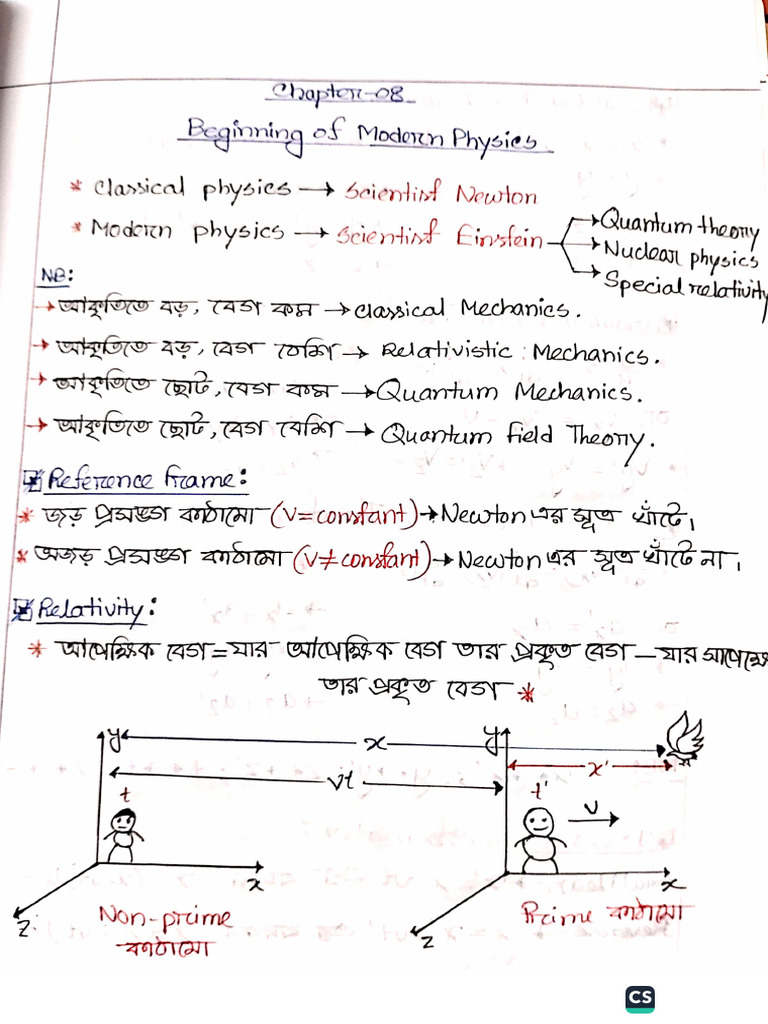 Chapter-08
Beginning of Modern Physics
* Classical physics → Scientist Newton
* Modern physics → Scientist Einstein → Quantum theory
→ Nuclear physics
→ Special relativity
NB:
→ আকৃতিতে বড়, বেগ কম → Classical Mechanics.
→ আকৃতিতে বড়, বেগ বেশি → Relativistic Mechanics.
→ আকৃতিতে ছোট, বেগ কম → Quantum Mechanics.
→ আকৃতিতে ছোট, বেগ বেশি → Quantum Field Theory.
Reference Frame:
* জড় প্রসঙ্গ কাঠামো (V=constant) → Newton এর সূত্র খাঁটে।
* অজড় প্রসঙ্গ কাঠামো (V≠constant) → Newton এর সূত্র খাঁটে না।
Relativity:
* আপেক্ষিক বেগ = যার আপেক্ষিক বেগ তার প্রকৃত বেগ — যার সাপেক্ষে
তার প্রকৃত বেগ *
y x y
x'
vt
t t'
v
x x
z z
Non-prime Prime কাঠামো
কাঠামো
CS